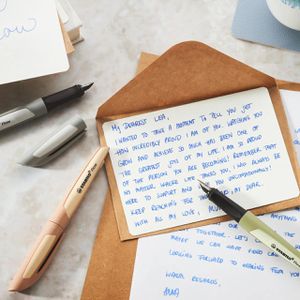 My DEAREST LEA,
I WANTED TO TAKE A MOMENT TO TELL YOU JUST
HOW INCREDIBLY PROUD I AM OF YOU. WATCHING YOU
GROW AND ACHIEVE SO MUCH HAS BEEN ONE OF
THE GREATEST JOYS OF MY LIFE. I AM SO PROUD
OF THE PERSON YOU ARE BECOMING! REMEMBER THAT
NO MATTER WHERE LIFE TAKES YOU, I WILL ALWAYS BE
HERE TO SUPPORT AND LOVE YOU UNCONDITIONALLY!
KEEP REACHING FOR THE STARS, MY DEAR.
WITH ALL MY LOVE,
ANYTHING
TOGETHER. LET'S
WE CAN HAVE
LOOKING FORWARD TO HEARING FROM YOU
WARM REGARDS,
ANNA
STABILO
STABILO
Flow